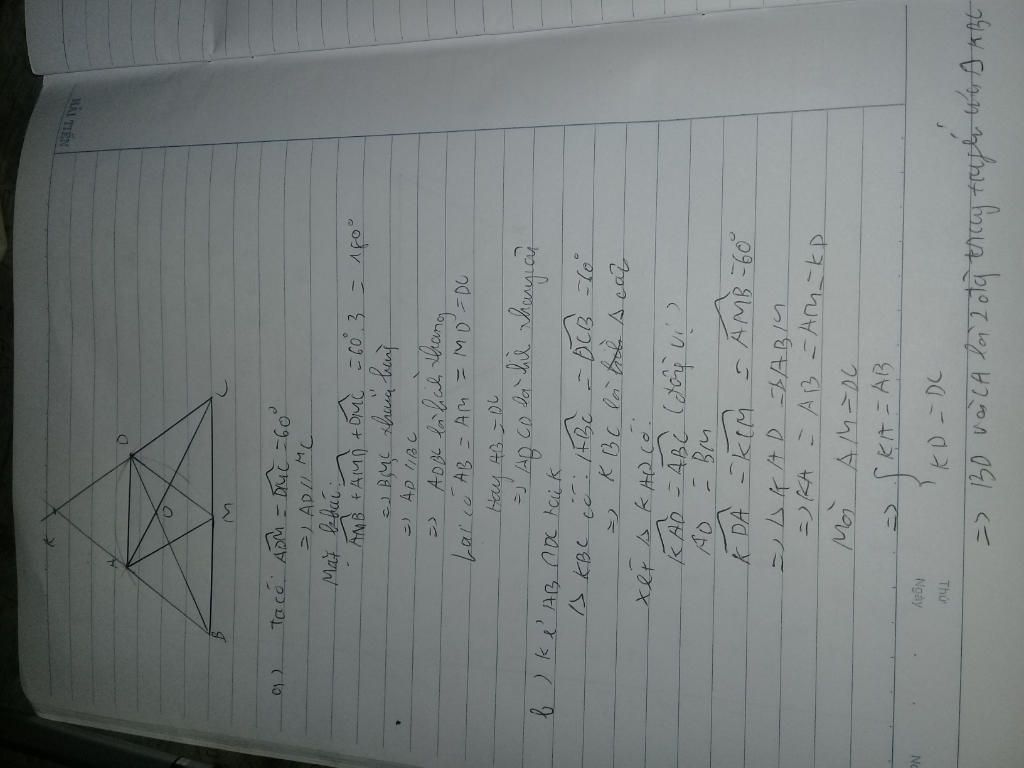 K
A
D
O
B
M
C
a) Ta có: ADM = DMC = 60°
=> AD // MC
Mặt khác:
AMB + AMD + DMC = 60°.3 = 180°
=> BMC thẳng hàng
=> AD // BC
=> ADBC là hình thang
Lại có AB = AM = MD = DC
Hay AB = DC
=> ABCD là hình thang cân
b) Kẻ AB ∩ DC tại K
Δ KBC có: ABC = DCB = 60°
=> KBC là Δ cân
xét Δ KAD có:
KAD = ABC (đồng vị)
AD = BM
KDA = KCM = AMB = 60°
=> Δ KAD = ΔABM
=> KA = AB = AM = KD
Mà AM = DC
=> { KA = AB
KD = DC
=> BD và CA là 2 đường trung tuyến của Δ KBC
Thứ
Ngày
No
HẢI TIẾN